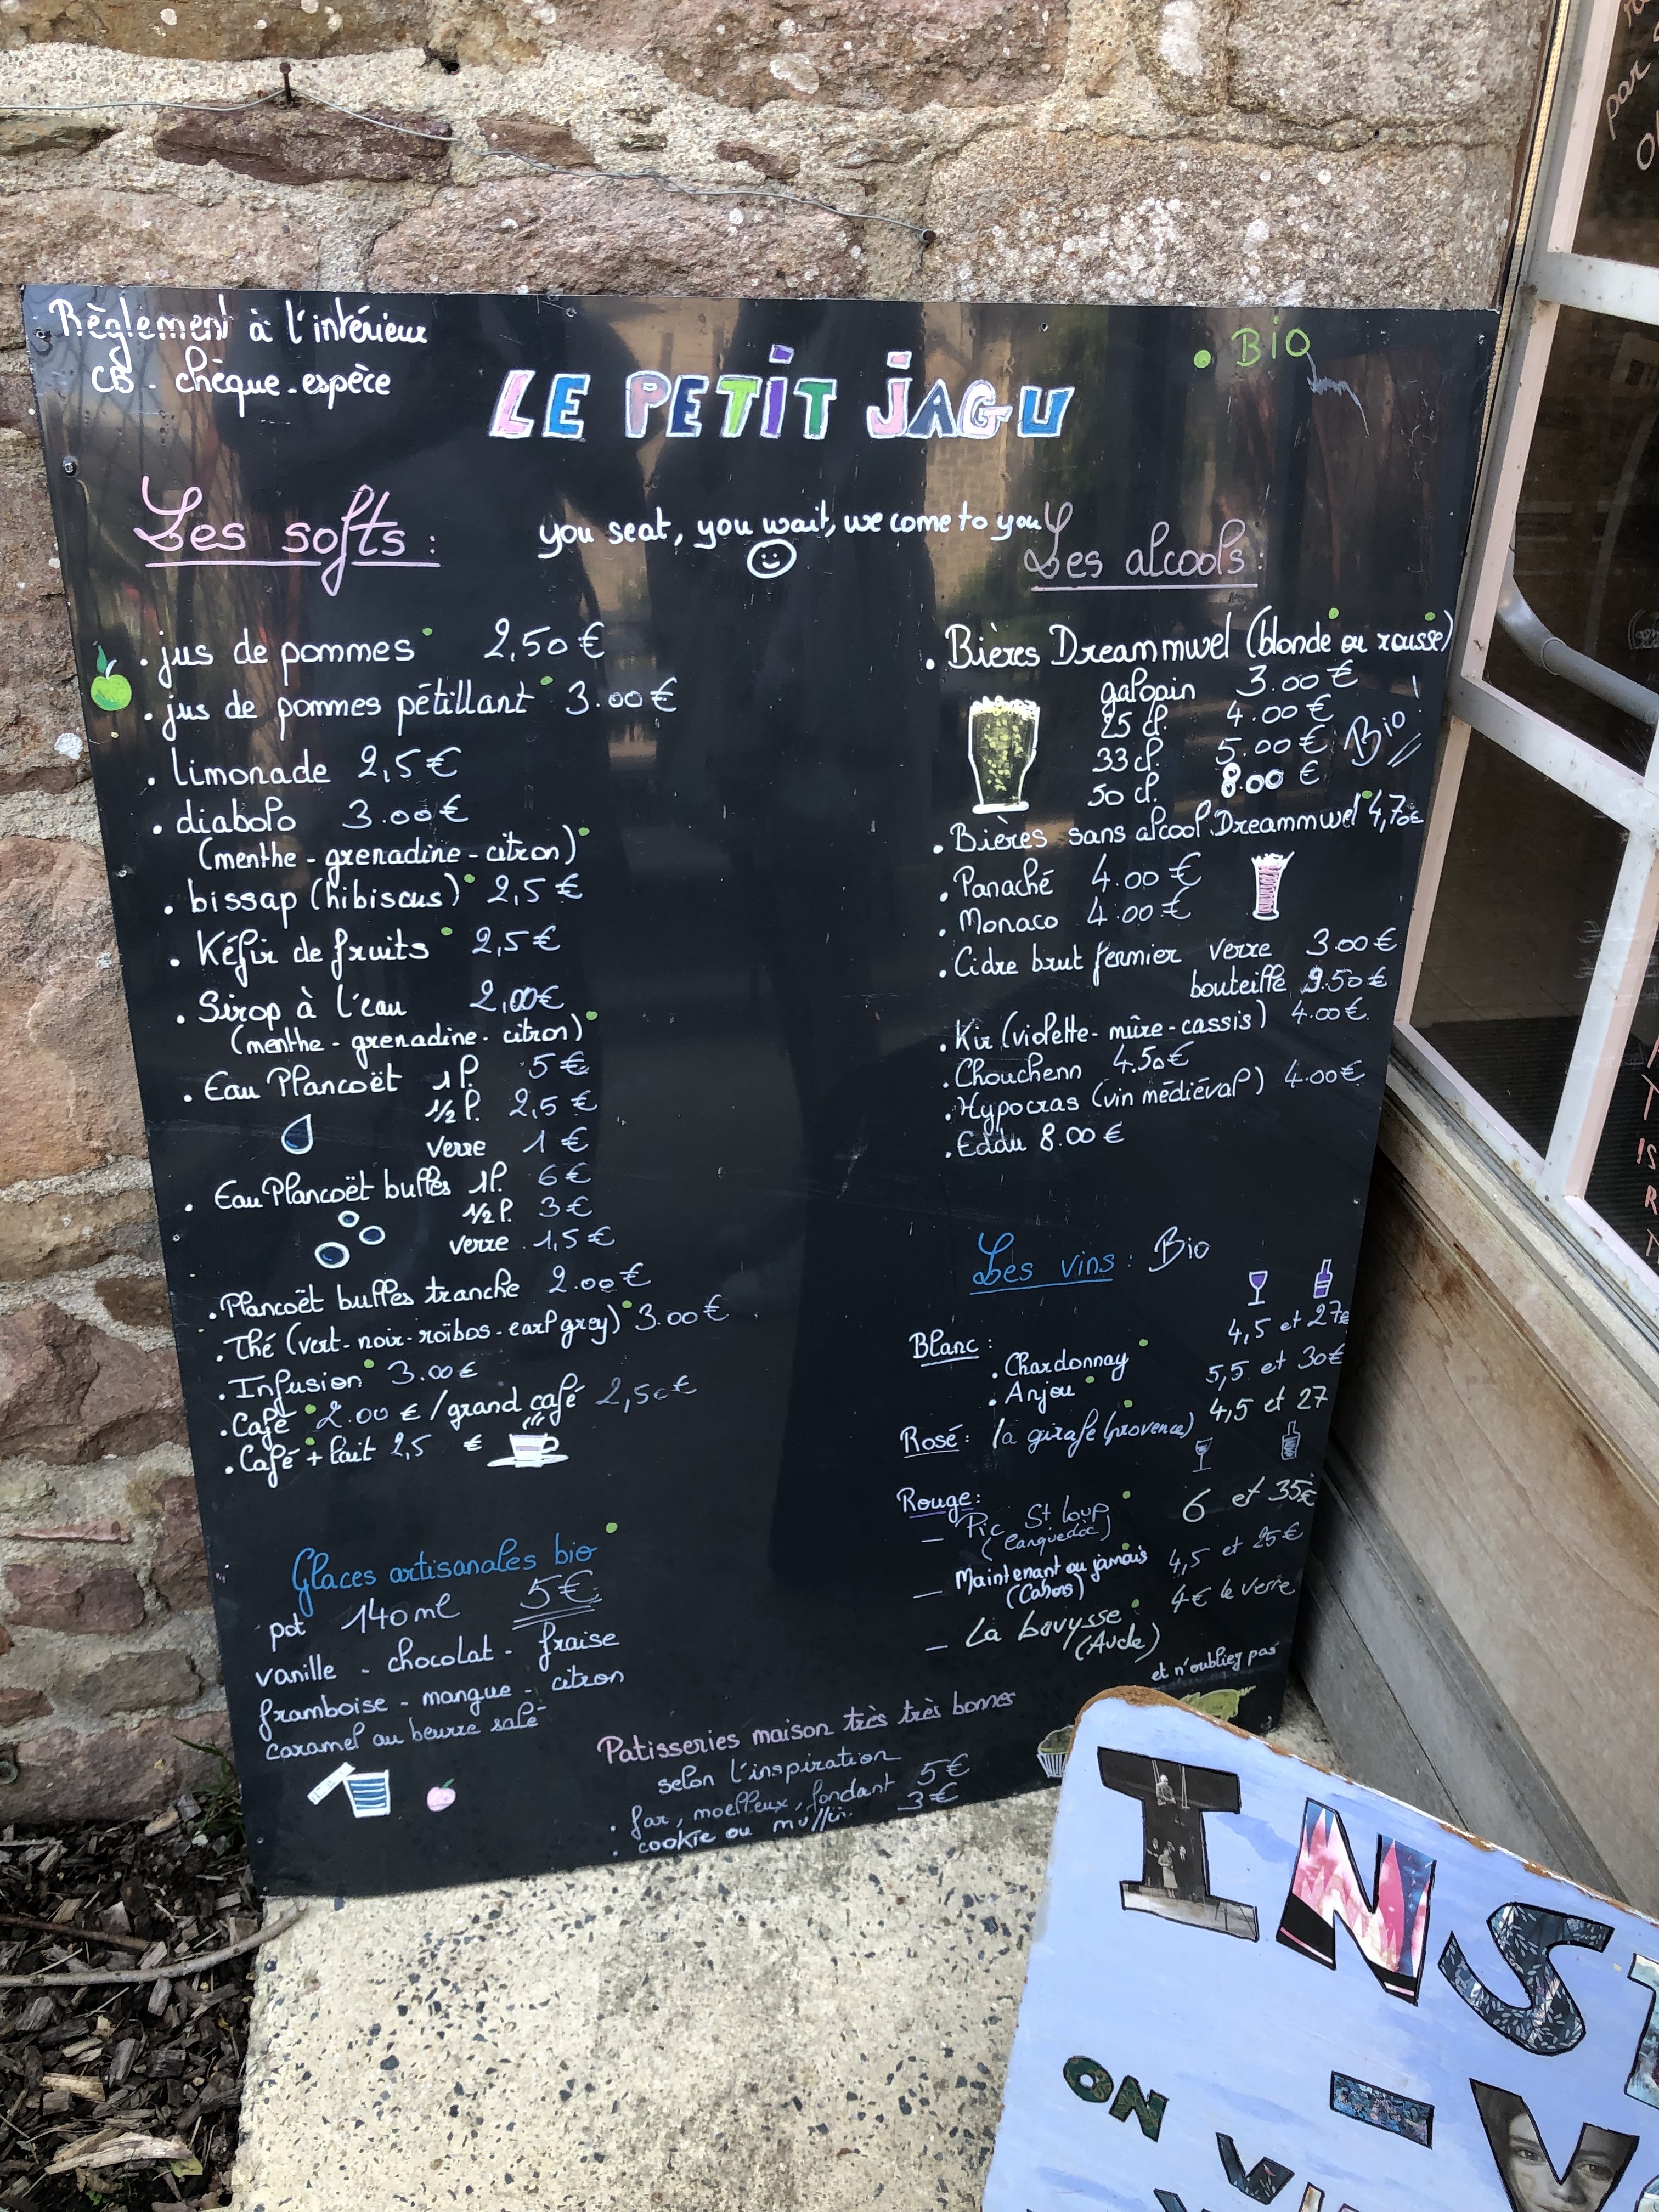 Règlement à l'intérieur
CB - chèque - espèce
• BIO
LE PETIT JAGU
you seat, you wait, we come to you
Les softs :
• jus de pommes 2,50 €
• jus de pommes pétillant 3.00 €
• limonade 2,5 €
• diabolo 3.00 €
(menthe - grenadine - citron)
• bissap (hibiscus) 2,5 €
• Kéfir de fruits 2,5 €
• Sirop à l'eau 2,00€
(menthe - grenadine - citron)
• Eau Plancoët 1l. 5 €
1/2 l. 2,5 €
verre 1 €
• Eau Plancoët bulles 1l. 6 €
1/2 l. 3 €
verre 1,5 €
• Plancoët bulles tranche 2.00 €
• Thé (vert - noir - roïbos - earl grey) 3.00 €
• Infusion 3.00 €
• Café 2.00 € / grand café 2,50 €
• Café + lait 2,5 €
Glaces artisanales bio
pot 140 ml 5 €
vanille - chocolat - fraise
framboise - mangue - citron
caramel au beurre salé
Les alcools :
• Bières Dreammwel (blonde ou rousse)
galopin 3.00 €
25 cl. 4.00 €
33 cl. 5.00 € Bio
50 cl. 8.00 €
• Bières sans alcool Dreammwel 4,70€
• Panaché 4.00 €
• Monaco 4.00 €
• Cidre brut fermier verre 3.00 €
bouteille 9.50 €
• Kir (violette - mûre - cassis) 4.00€
• Chouchenn 4.50 €
• Hypocras (vin médiéval) 4.00 €
• Eddu 8.00 €
Les vins : Bio
Blanc :
• Chardonnay 4,5 et 27€
• Anjou 5,5 et 30€
Rosé : la girafe (provence) 4,5 et 27
Rouge :
– Pic St loup 6 et 35€
(Languedoc)
– Maintenant ou jamais 4,5 et 25 €
(Cahors)
– La bavysse 4€ le verre
(Aude)
et n'oubliez pas
Patisseries maison très très bonnes
selon l'inspiration
• far, moelleux, fondant 5 €
• cookie ou muffin. 3 €
INS
ON - V
par